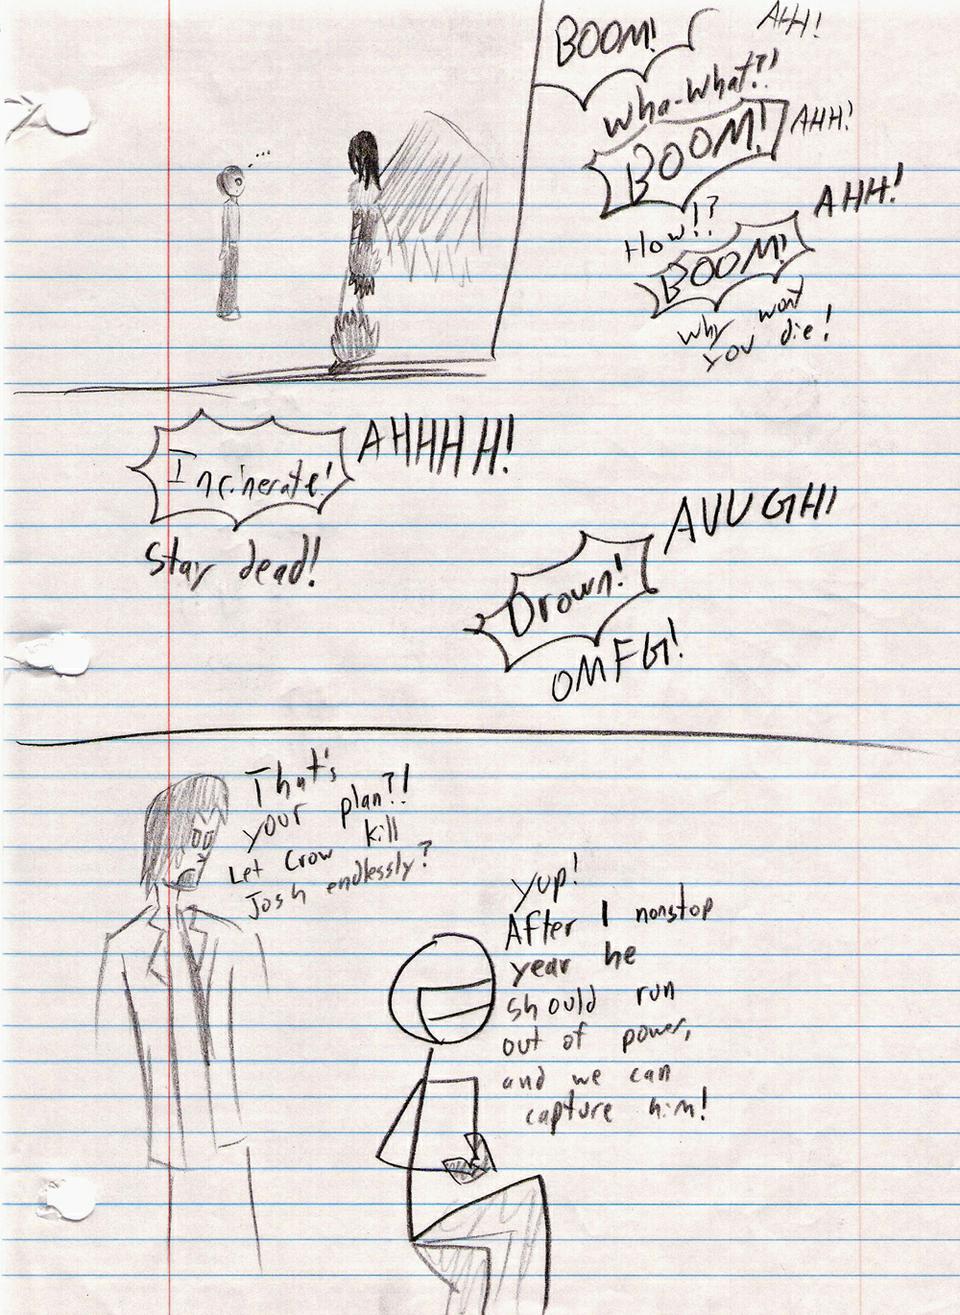 ....
BOOM!
AHH!
Wha-What?!
BOOM!
AHH!
How!?
BOOM!
AHH!
Why wont
you die!
Incinerate!
AHHHH!
Stay dead!
Drown!
AUUGH!
OMFG!
That's
your plan?!
Let Crow kill
Josh endlessly?
Yup!
After 1 nonstop
year he
should run
out of power,
and we can
capture him!